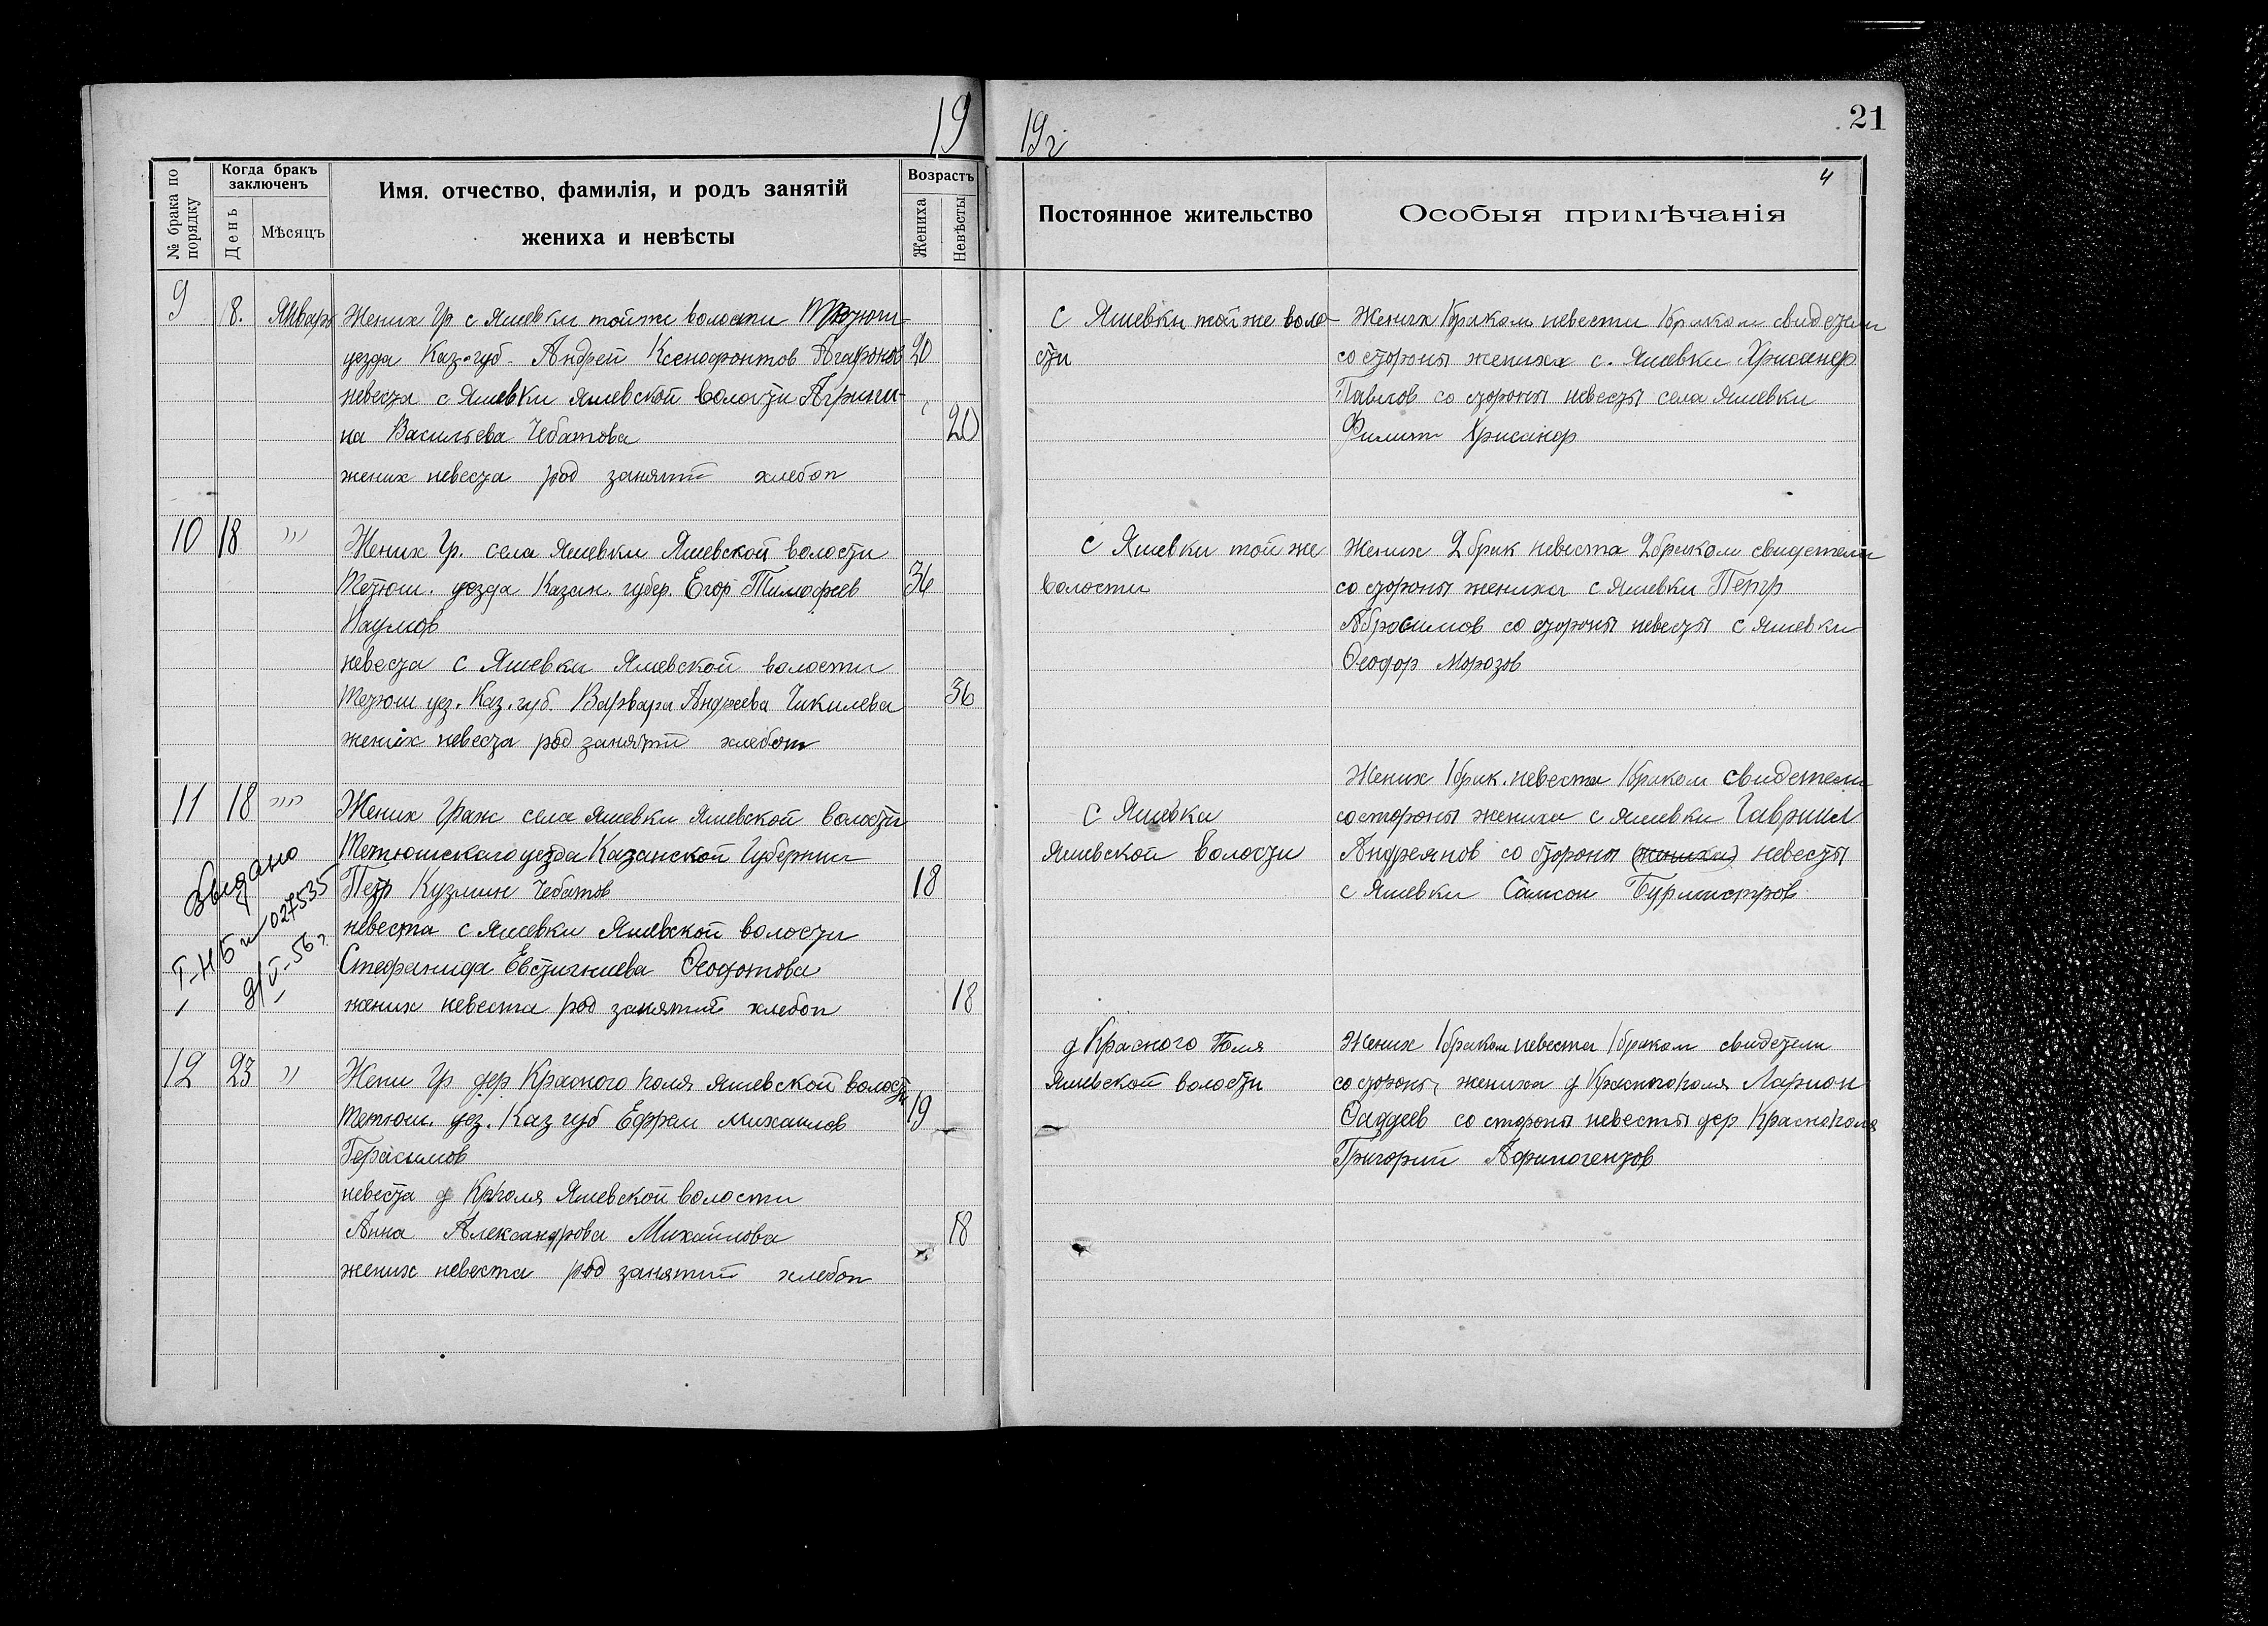 19
19г
21
4
№ брака по порядку
Когда бракъ заключенъ
День
Мѣсяцъ
Имя, отчество, фамилія, и родъ занятій
жениха и невѣсты
Возрастъ
Жениха
Невѣсты
Постоянное жительство
Особыя примѣчанія
9 8. Январь Жених Гр с Яшевки тойже волости
уезда Каз. губ. Андрей Ксенофонтов Агафонов 20
невеста с Яшевки Яшевской волости Агрипи-
на Васильева Чебатова 20
жених невеста род занятий хлебоп
С Яшевки той же воло-
сти
Жених 1браком невести 1браком свидетели
со стороны жениха с. Яшевки Хрисанф
Павлов со стороны невесты села Яшевки
Филипп Хрисанф
10 18 "" Жених Гр. села Яшевки Яшевской волости
Тетюш. уезда Казан. губер. Егор Тимофеев 36
Наумов
невеста с Яшевки Яшевской волости
Тетюш уез. Каз. губ. Варвара Андреева Чикилева 36
жених невеста род занятий хлебоп
С Яшевки той же
волости
Жених 2 брак невеста 2браком свидетели
со стороны жениха с Яшевки Петр
Абросимов со стороны невесты с Яшевки
Феодор Морозов
11 18 "" Жених Граж села Яшевки Яшевской волости
Тетюшскаго уезда Казанской Губернии
Петр Кузмин Чебатов 18
невеста с Яшевки Яшевской волости
Стефанида Евстигниева Феофотова
жених невеста род занятий хлебоп 18
027535
56 г
С Яшевка
Яшевской волости
Жених 1брак. невеста 1браком свидетели
со стороны жениха с Яшевки Гавриил
Андреянов со стороны (жениха) невесты
с Яшевки Самсон Бурмистров
12 23 " Жени Гр дер Красного поля Яшевской волости
Тетюш. уез. Каз губ Ефрем Михаилов 19
Герасимов
невеста д Кр поля Яшевской волости
Анна Александрова Михайлова 18
жених невеста род занятий хлебоп
д Красного Поля
Яшевской волости
Жених 1браком невеста 1браком свидетели
со стороны жениха д Красного поля Ларион
Фаддеев со стороны невесты дер Красн поля
Григорий Афиногентов